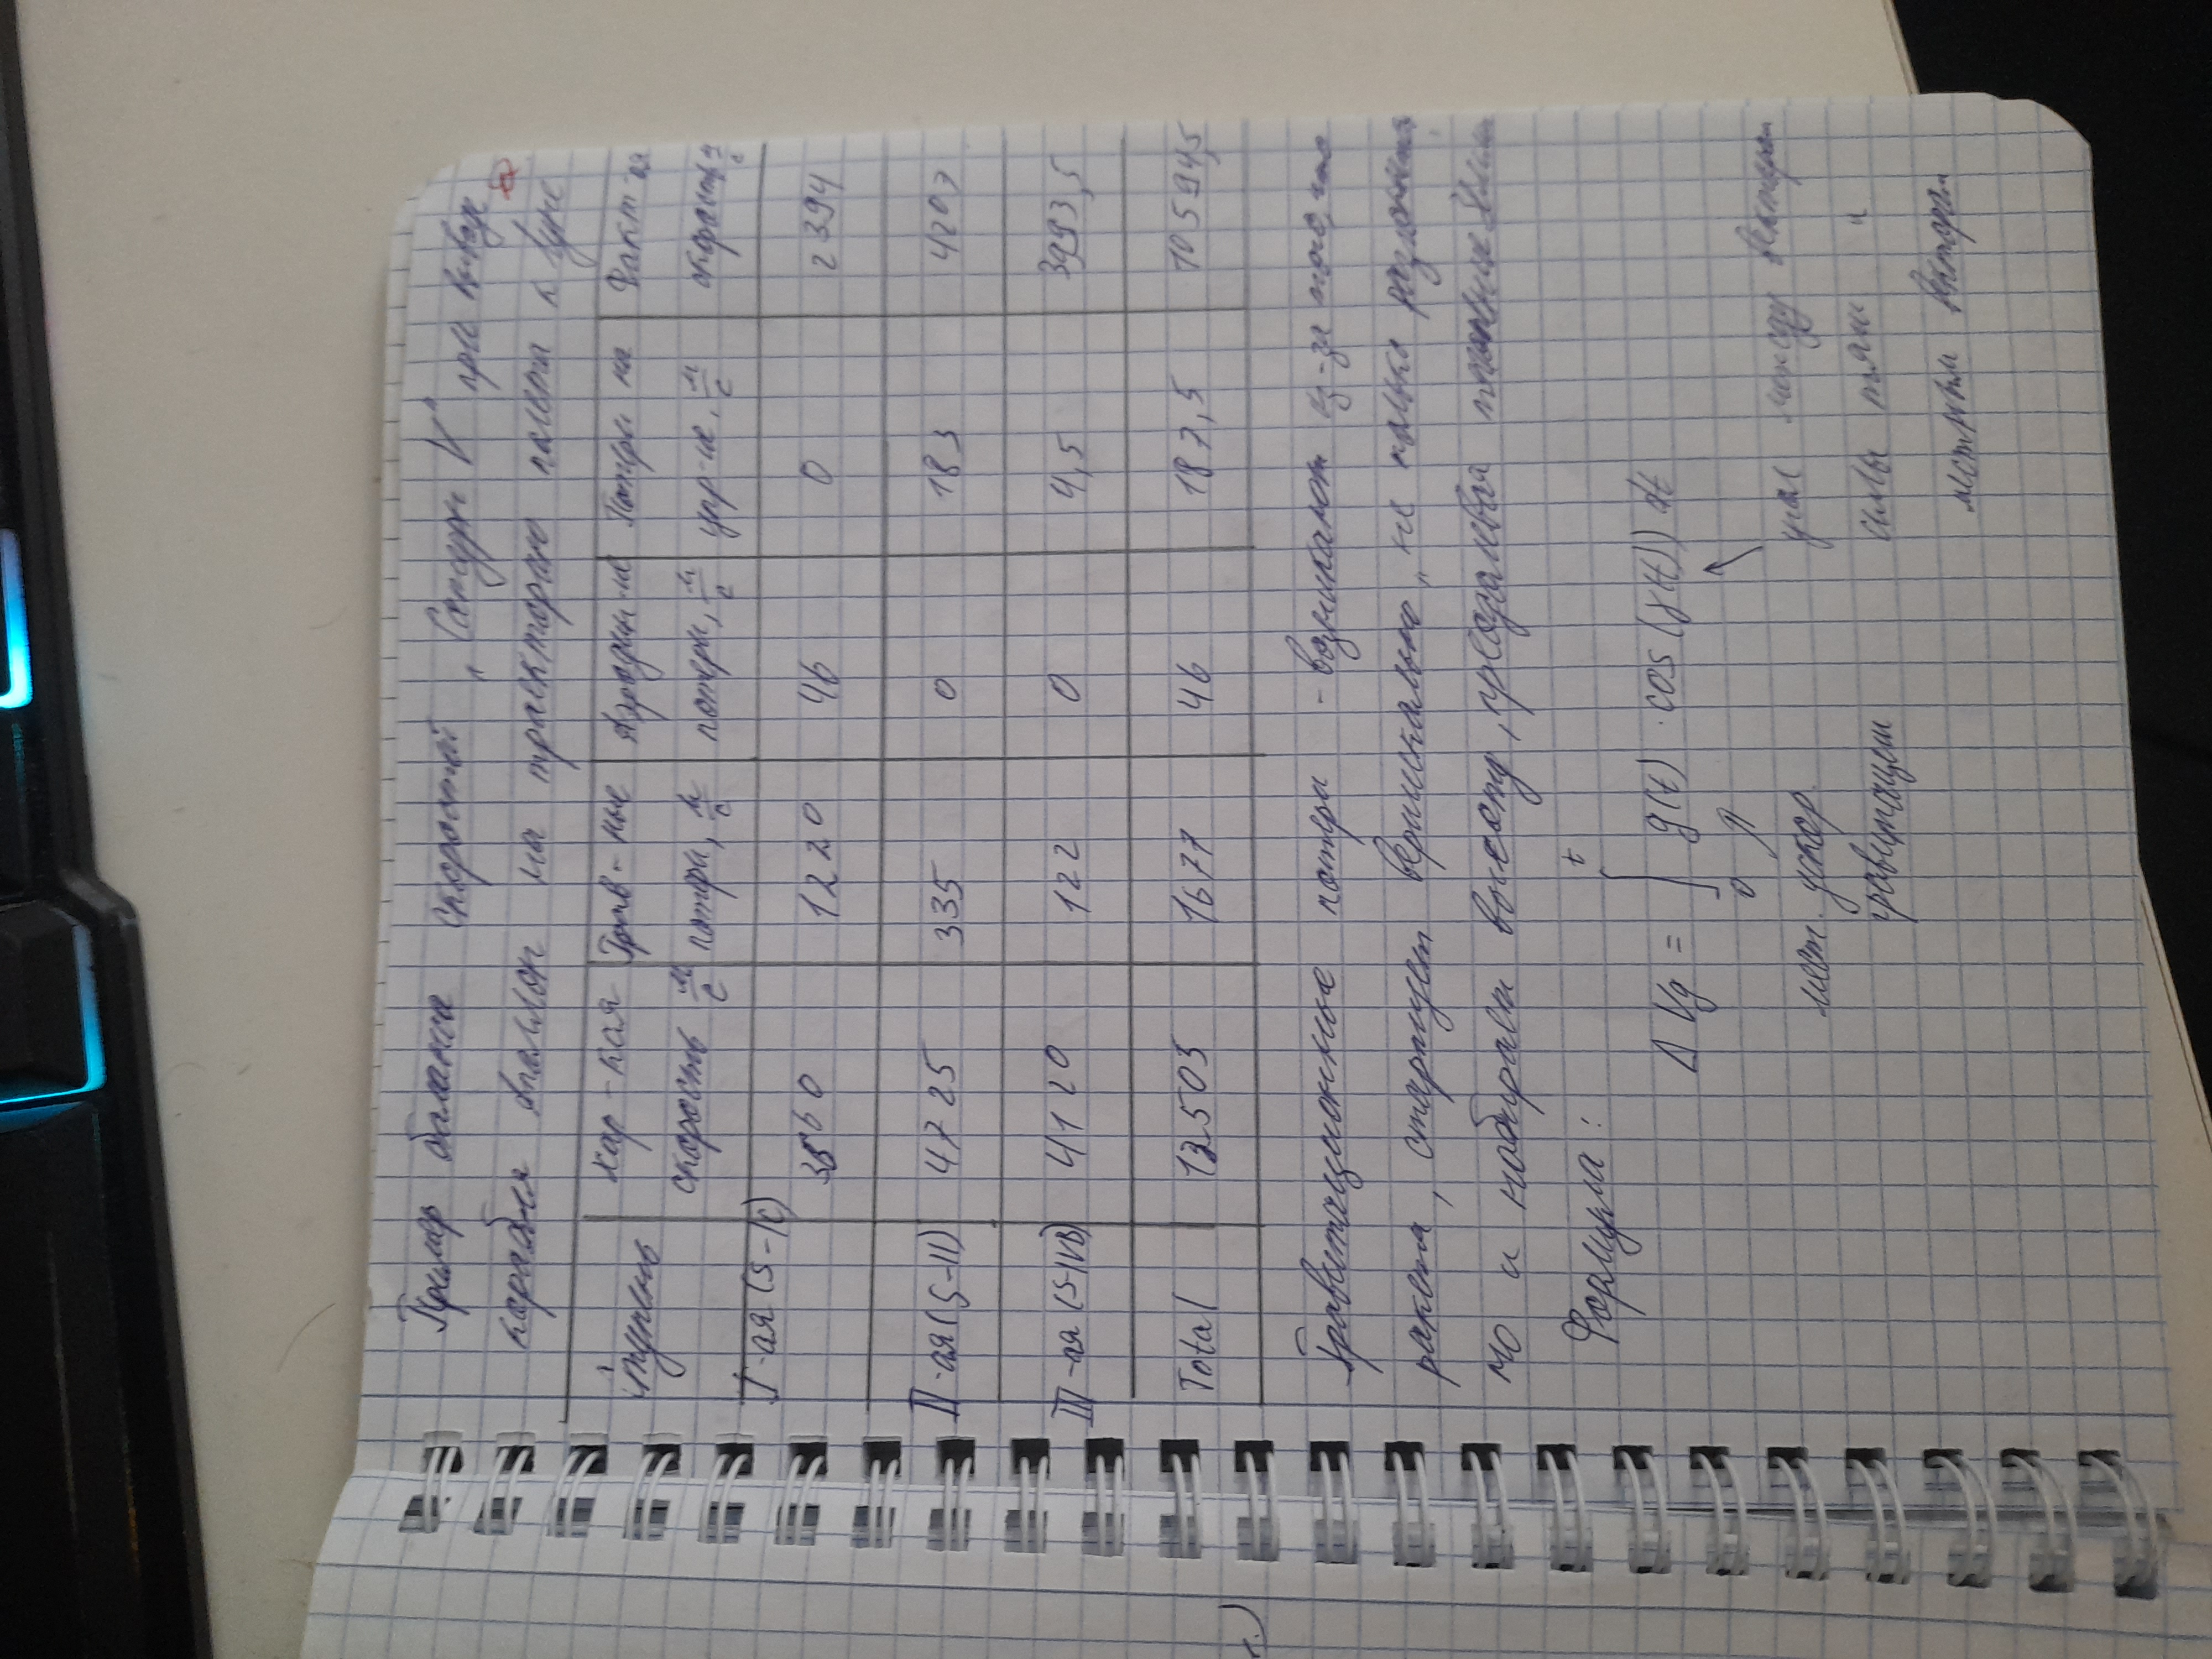 Пример баланса скоростей „Сатурн V" при выводе
корабля Аполлон на траекторию полета к Луне
Ступень
хар-кая скорость м/с
Грав-ные потери, м/с
Аэродин-ие потери, м/с
Потери на упр-ие, м/с
Факт-ая скорость м/с
I-ая (S-IC) 3660 1220 46 0 2394
II-ая (S-II) 4725 335 0 183 4207
III-ая (S-IVB) 4120 122 0 4,5 3993,5
Total 12505 1677 46 187,5 10594,5
Гравитационные потери - возникают из-за того, что
ракета, стартует вертикально, не только разгоняется
но и набирает высоту, преодолевая тяготение Земли
Формула:
ΔVg = ∫₀ᵗ g(t) · cos(γ(t)) dt
мест. ускор.
гравитации
угол между вектором
силы тяги и
местным вектором